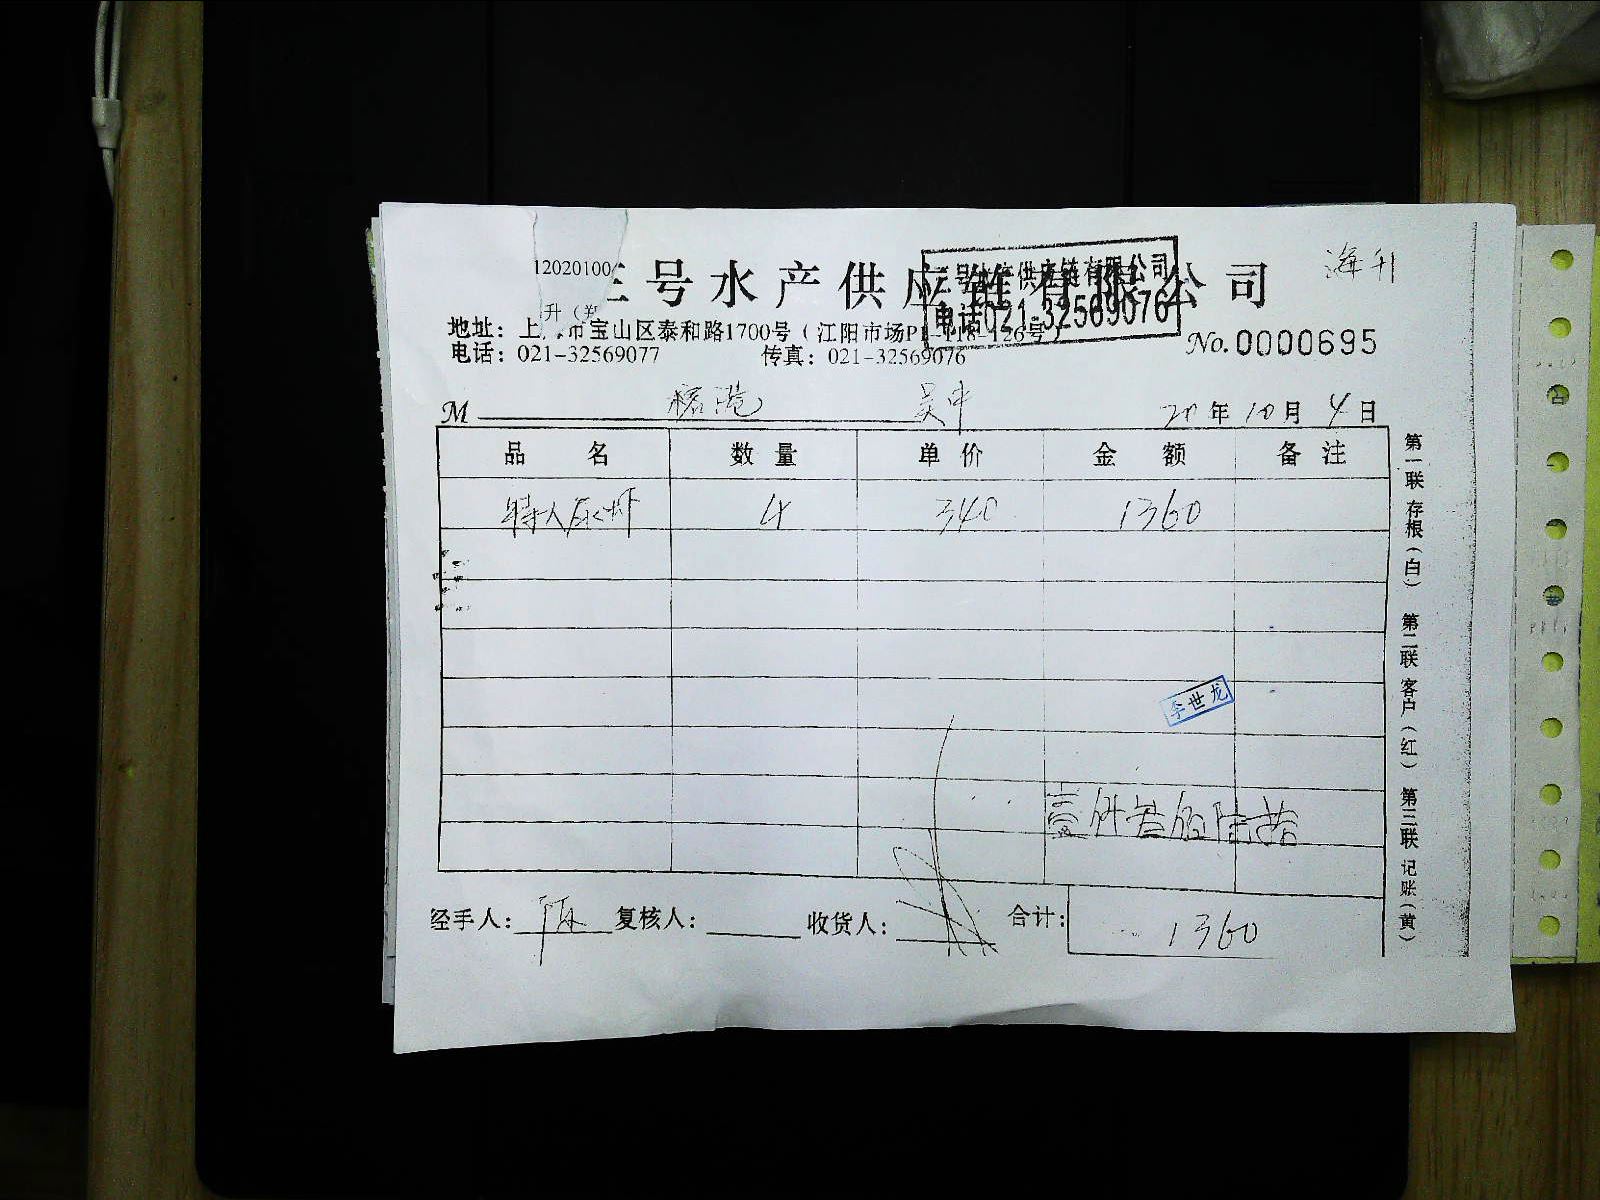 12020100
三号水产供应链有限公司
三号水产供应链有限公司
电话021-32569076
海升
升（
地址：上 市宝山区泰和路1700号（江阳市场P1-118-126号）
电话：021-32569077 传真：021-32569076
No.0000695
M 榕港 吴中
20年10月4日
品名 数量 单价 金额 备注
特大灰虾 4 340 1360
李世龙
壹仟叁佰陆拾
经手人： 陈 复核人： 收货人： 合计： 1360
第一联 存根（白） 第二联 客户（红） 第三联 记账（黄）